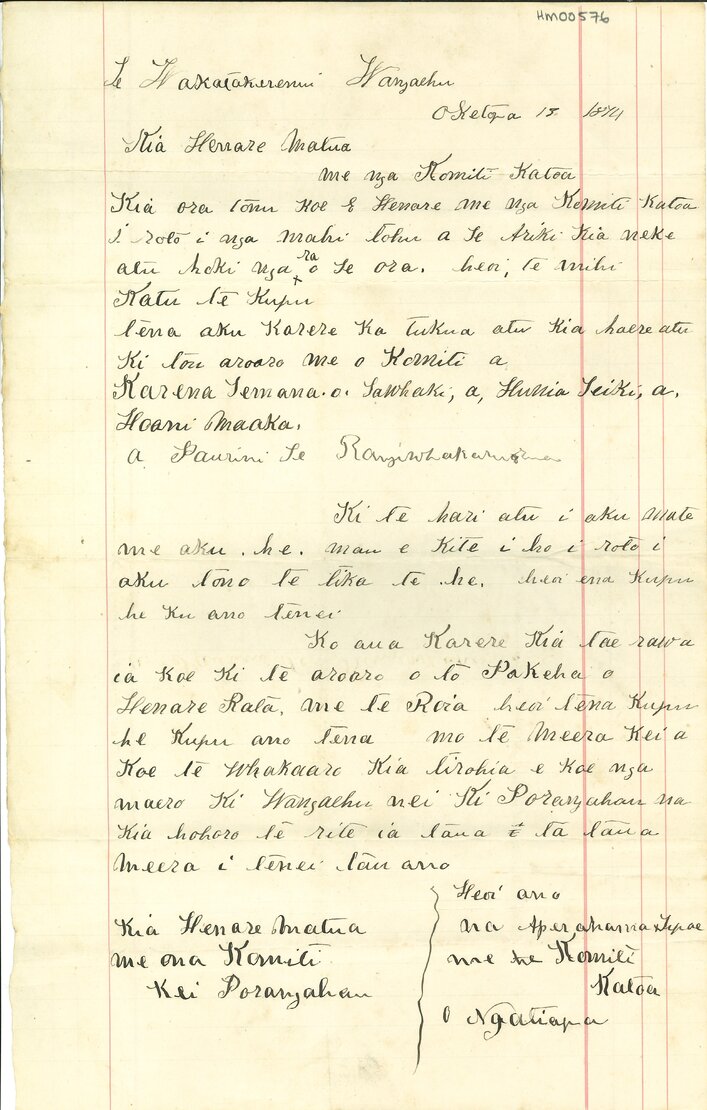 HM00576
Te Wakatakerenui Wangaehu
Oketopa 15 1874
Kia Henare Matua
me nga Komiti Katoa
Kia ora tonu koe E Henare me nga Komiti Katoa
i roto i nga mahi tohu a Te Ariki Kia neke
atu hoki nga ra o Te ora. heoi, te mihi
Katu te Kupu
tena aku Karere Ka tukua atu Kia haere atu
Ki tou aroaro me o Komiti a
Karena Temana. o. Tawhaki, a, Hunia Teiki, a,
Hoani Maaka.
a Paurini Te
Ki te hari atu i aku mate
me aku . he . mau e Kite i ho i roto i
aku tono te tika te . he. heoi ena Kupu
he Ku ano tenei
Ko aua Karere Kia tae rawa
ia Koe Ki te aroaro o to Pakeha o
Henare Rata, me te Roia heoi tena Kupu
he Kupu ano tena mo te Meera Kei a
Koe te whakaaro Kia tirohia e Koe nga
maero Ki Wangaehu nei Ki Porangahau na
Kia hohoro te rite ia taua ta taua
Meera i tenei tau ano
Heoi ano
na Aperahama Tipae
me te Komiti
Katoa
o Ngatiapa
Kia Henare Matua
me ona Komiti
Kei Porangahau